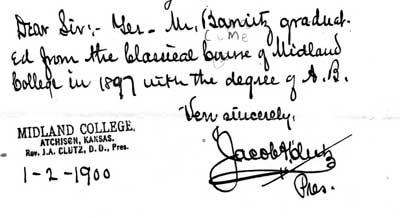 Dear Sir:- Yes - Mr. Barnitz graduat-
ed from the Classical Course of Midland
College in 1897 with the degree of A.B.
Very sincerely,
Jacob A Clutz
Pres.
MIDLAND COLLEGE,
ATCHISON, KANSAS.
Rev. J.A. CLUTZ, D. D., Pres.
1-2-1900